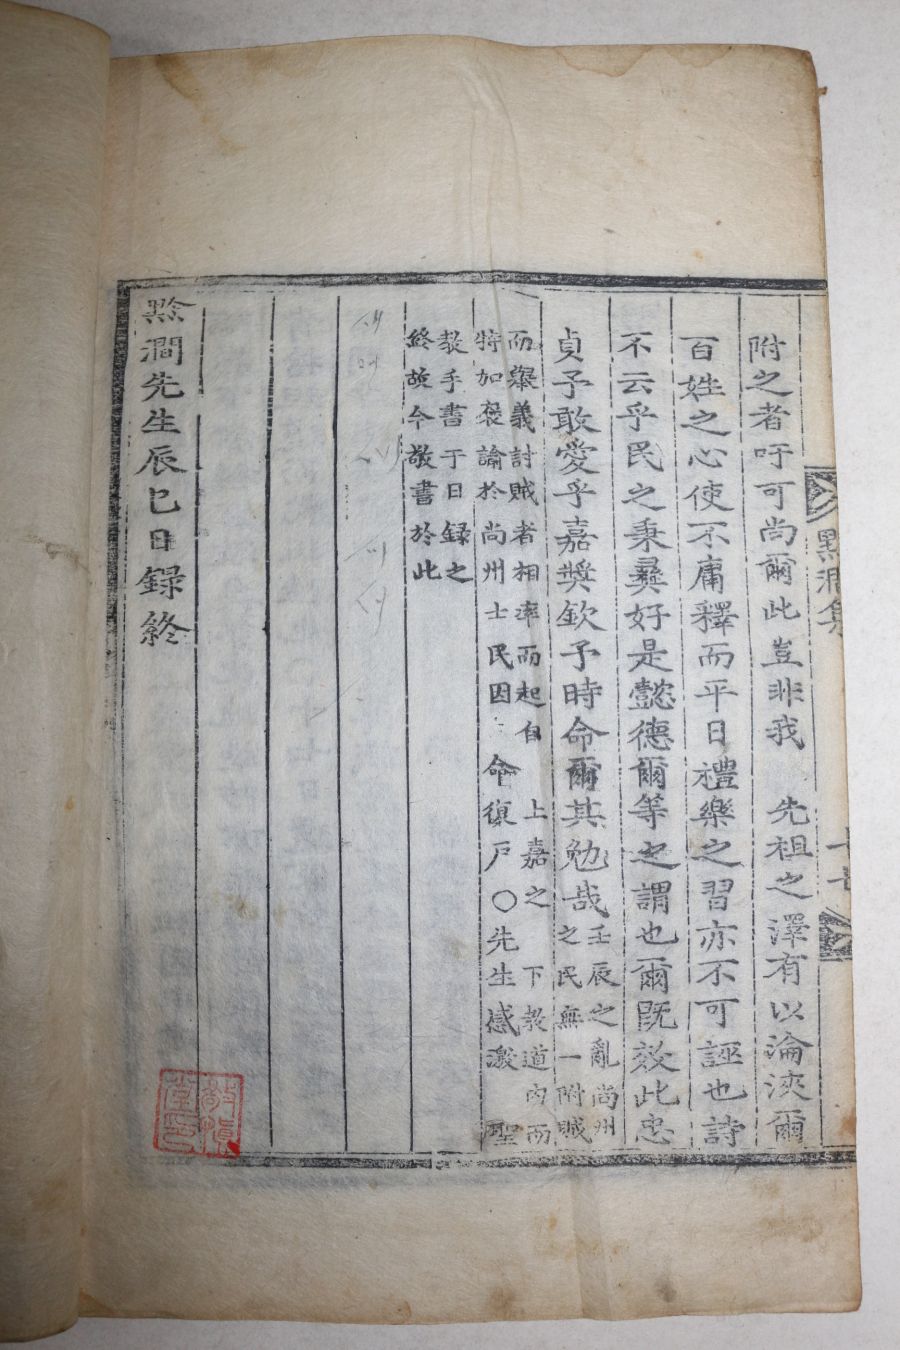 黔澗集
十七
附之者吁可尚爾此豈非我　先祖之澤有以淪浹爾
百姓之心使不庸釋而平日禮樂之習亦不可誣也詩
不云乎民之秉彛好是懿德爾等之謂也爾既效此忠
貞予敢愛乎嘉奬欽予時命爾其勉哉壬辰之亂尚州
之民無一附賊
而舉義討賊者相率而起自　上嘉之　下教道內而
特加褒諭於尚州士民因　命復戶○先生感激　聖
教手書于日録之
終故今敬書於此
黔澗先生辰巳日録終